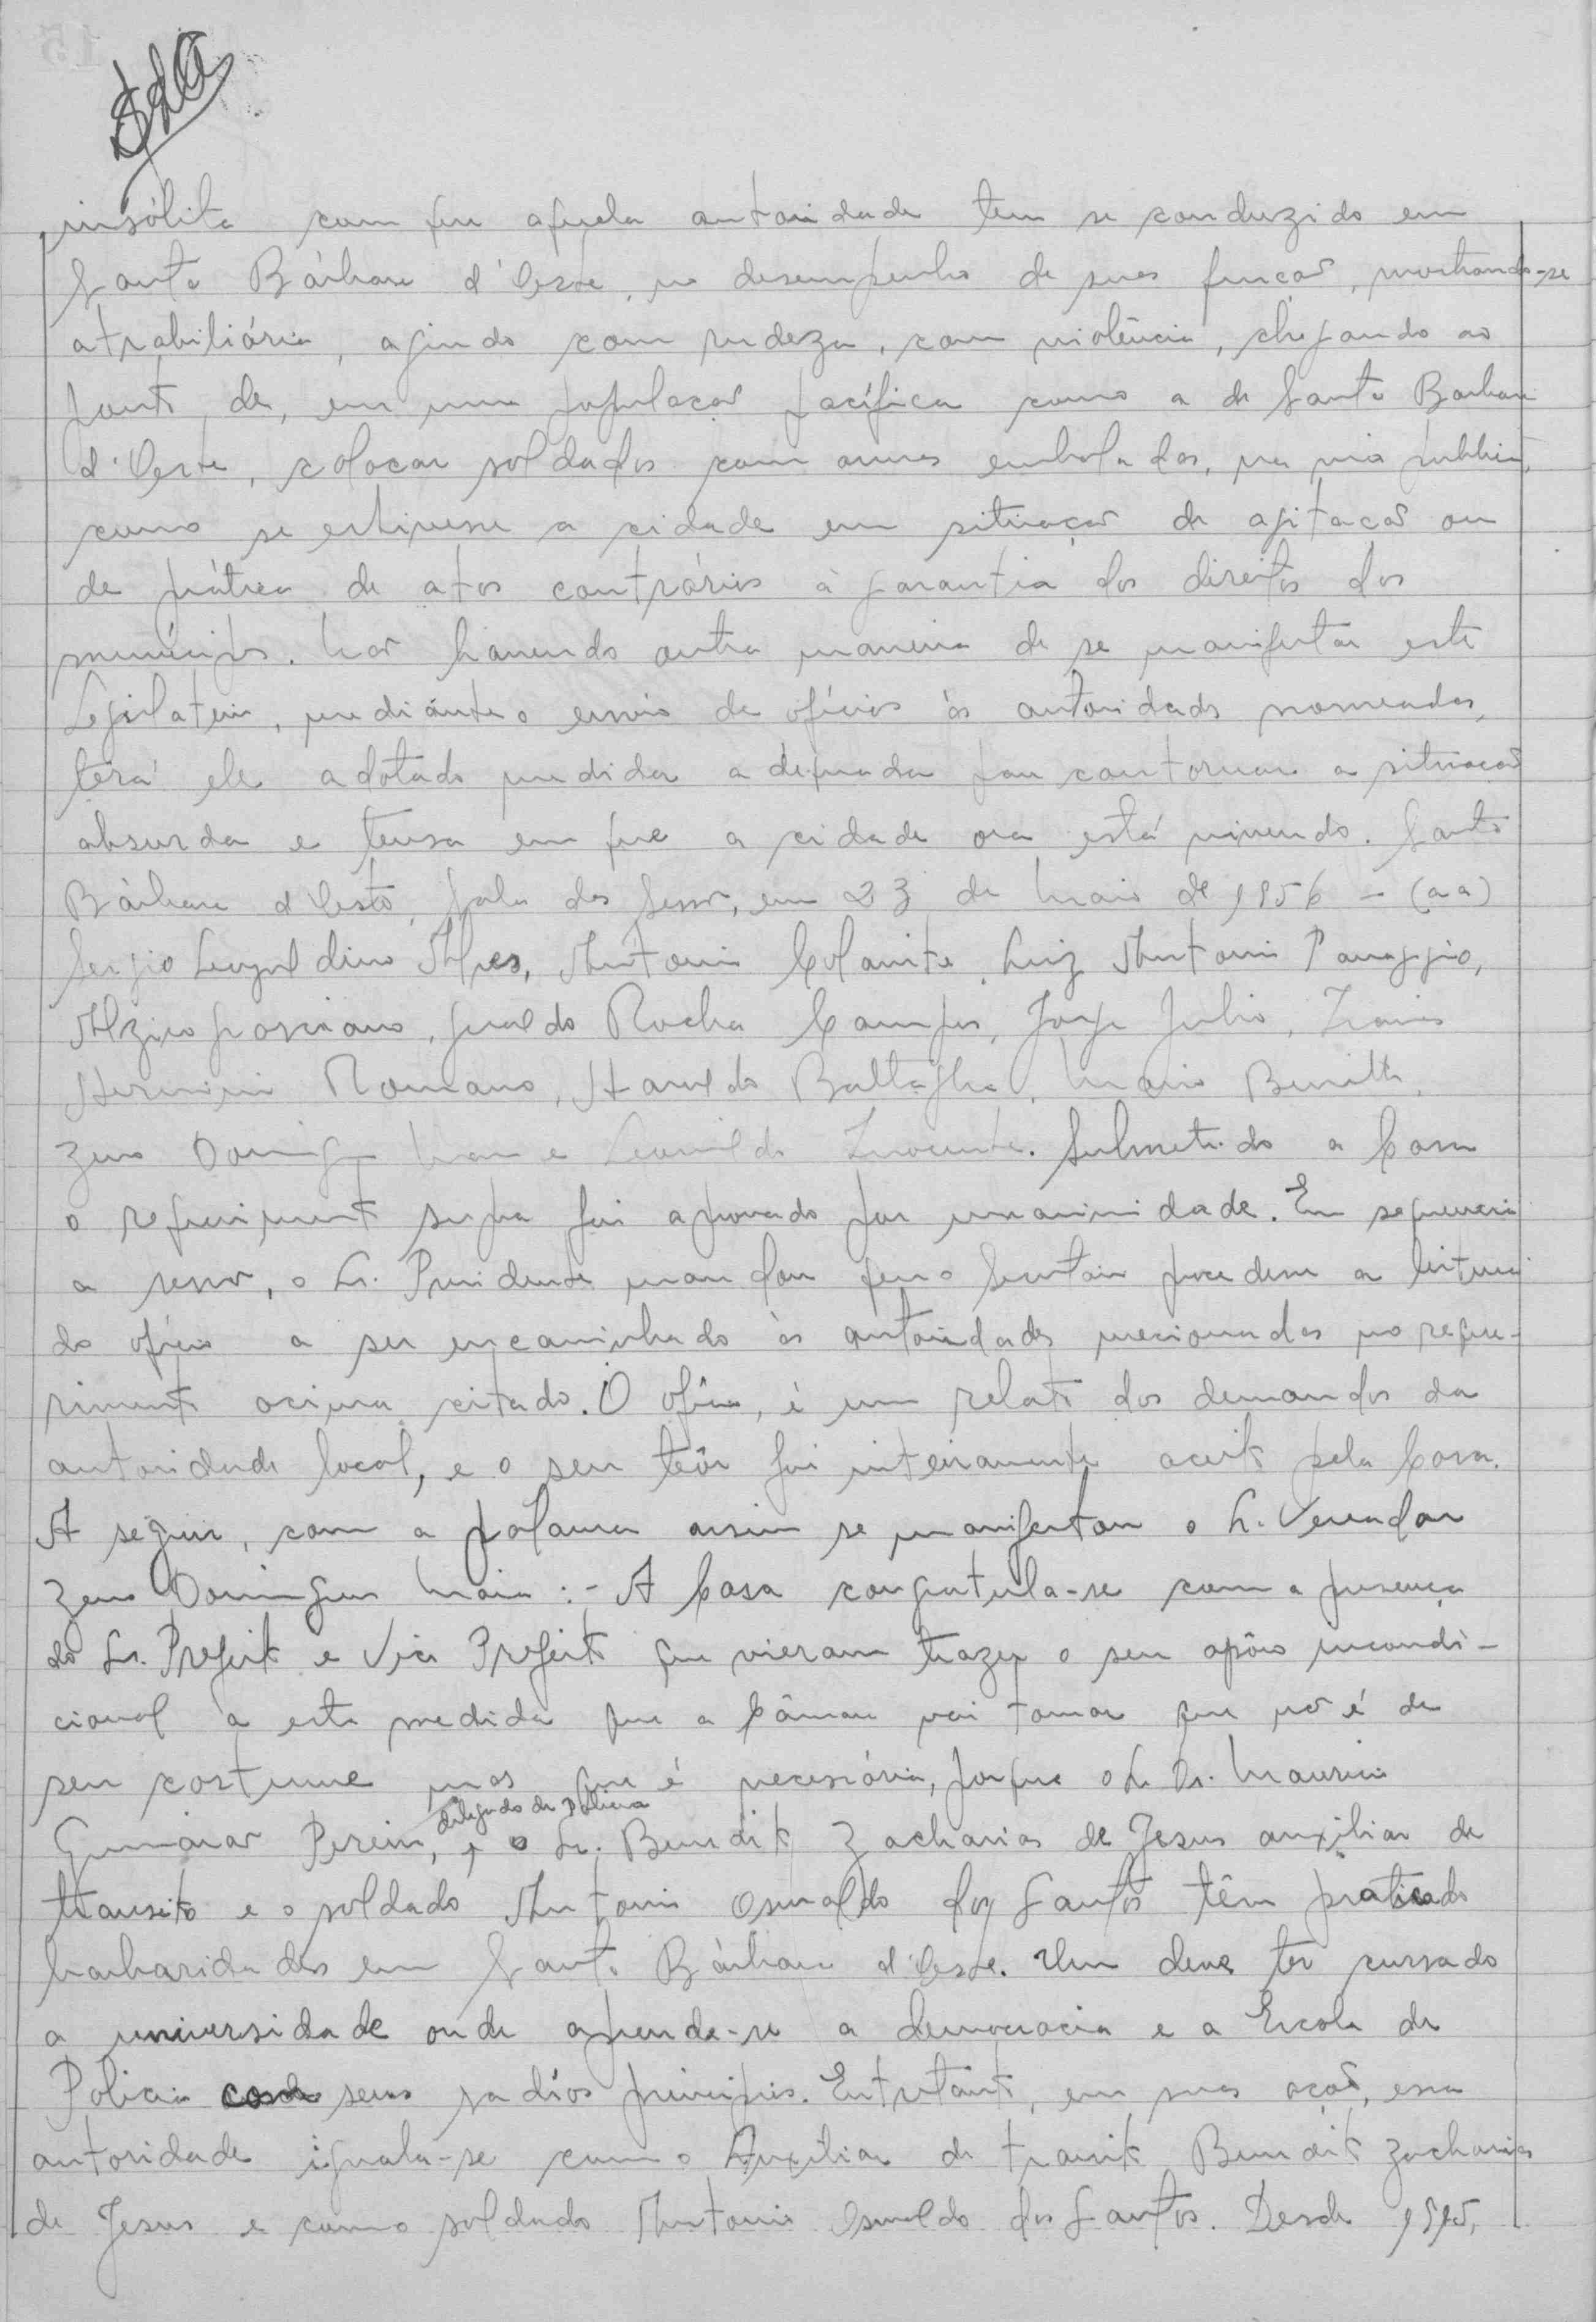 insólita com que aquela autoridade tem se conduzido em
Santa Bárbara d'Oeste, no desempenho de suas função, mostrando-se
atrabiliária, agindo com rudeza, com violência, chegando ao
ponto de, em uma população pacífica como a de Santa Barbara
d'Oeste, colocar soldados com armas embaladas, na via publica,
como se estivesse a cidade em situação de agitação ou
de prática de atos contrários à garantia dos direitos dos
municipes. Não havendo outra maneira de se manifestar este
Legislativo, mediante o envio de ofícios às autoridades nomeadas,
terá ele adotado medida adequada para contornar a situação
absurda e tensa em que a cidade ora está vivendo. Santa
Bárbara d'Oeste, Sala das Sessões, em 23 de Maio de 1956 - (aa)
Sergio Leopoldino Alves, Antonio Luiz Antonio Panaggio,
Alziro Geraldo Rocha Campos, Jorge Julio,
Herminio Romano, Haroldo Battaglia, Mario
Zeno Domingues Maia e Leonildo. Submetido a Casa
o requerimento supra foi aprovado por unanimidade. Em sequencia
a sessão, o Sr. Presidente mandou que o Secretário procedesse a leitura
do ofício a ser encaminhado às autoridades mecionadas no reque-
rimento acima citado. O ofício, é um relato dos desmandos da
autoridade local, e o seu teôr foi inteiramente aceito pela Casa.
A seguir, com a palavra assim se manifestou o Sr. Vereador
Zeno Domingues Maia :- A Casa congratula-se com a presença
do Sr. Prefeito e Vice Prefeito que vieram trazer o seu apôio incondi-
cional a esta medida que a Câmara vai tomar que não é de
seu costume mas que é necessária, porque o Sr. Dr. Mauricio
delegado de Policia
Guimarães Pereira, e o Sr. Benedito Zacharias de Jesus auxiliar de
transito e o soldado Antonio Osvaldo dos Santos têm praticado
barbaridades em Santa Bárbara d'Oeste. Um deve ter cursado
a universidade onde aprende-se a democracia e a Escola de
Policia seus sadíos principios. Entretanto, em suas ação, essa
autoridade iguala-se com o Auxiliar de transito Benedito Zacharias
de Jesus e com o soldado Antonio Osvaldo dos Santos. Desde